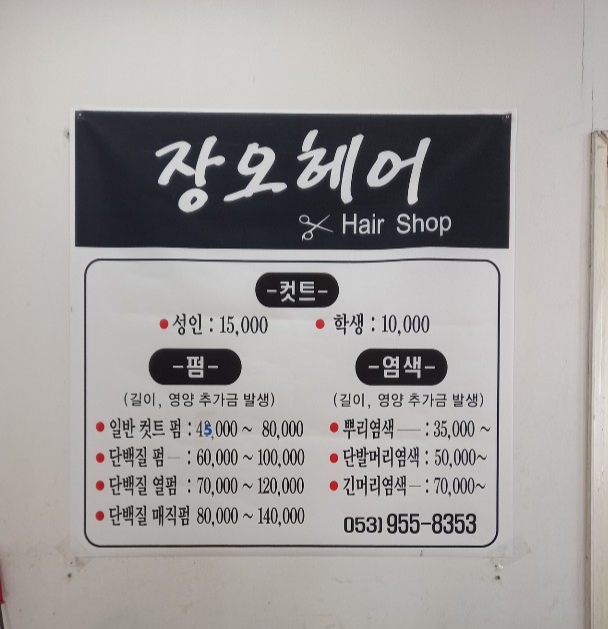 장오헤어
Hair Shop
-컷트-
• 성인 : 15,000
• 학생 : 10,000
-펌-
(길이, 영양 추가금 발생)
• 일반 컷트 펌 : 45,000 ~ 80,000
• 단백질 펌 — : 60,000 ~ 100,000
• 단백질 열펌 : 70,000 ~ 120,000
• 단백질 매직펌 80,000 ~ 140,000
-염색-
(길이, 영양 추가금 발생)
• 뿌리염색 — : 35,000 ~
• 단발머리염색 : 50,000~
• 긴머리염색 — : 70,000~
053) 955-8353